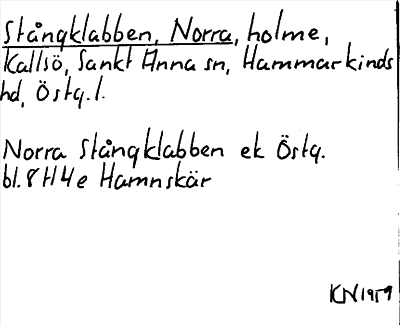 Stångklabben, Norra, holme,
Kallsö, Sankt Anna sn, Hammarkinds
hd, Östg.l.
Norra Stångklabben ek Östg.
bl. 8 H4e Hamnskär
KN1959